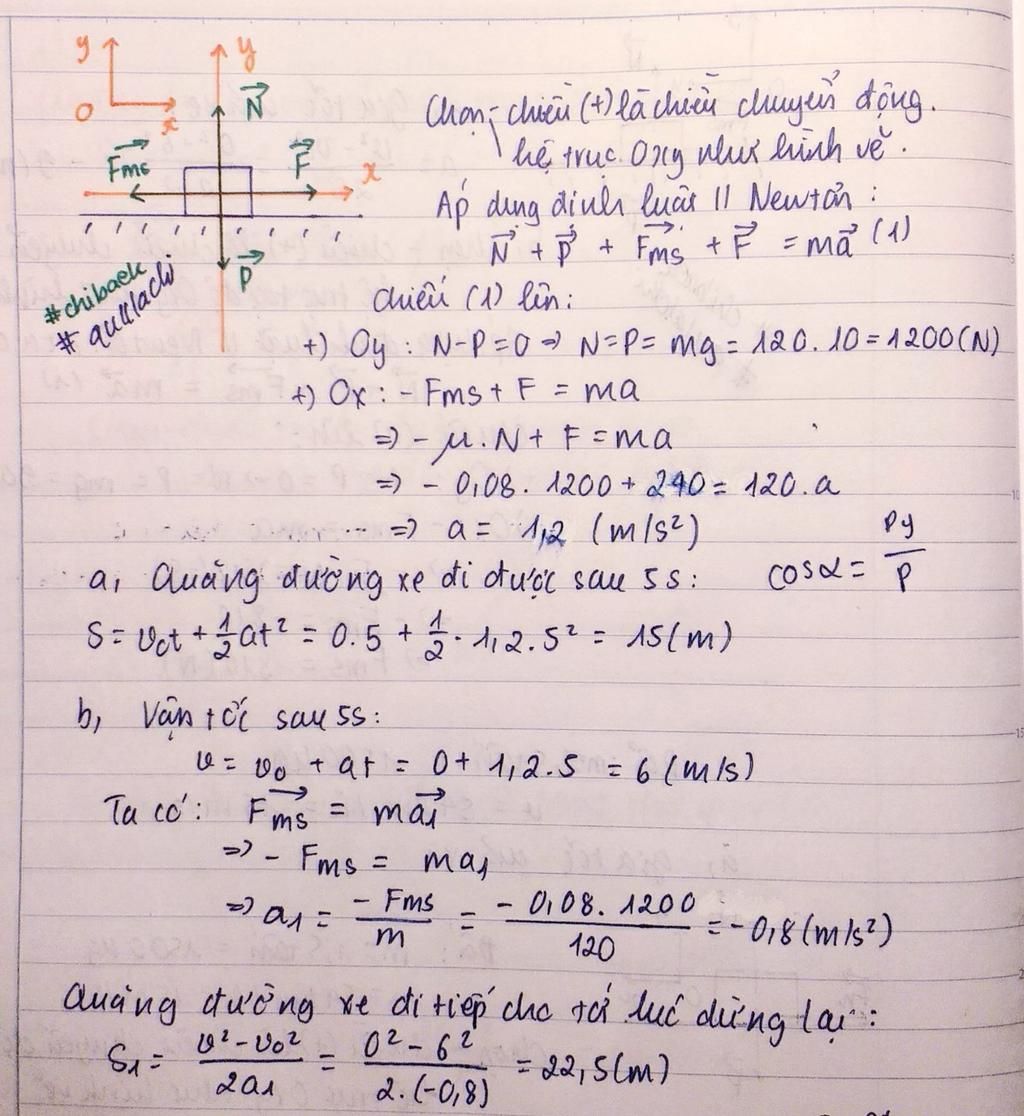 y
y
O
x
N
Fms
F
x
P
#chibaek
# quullachi
Chọn - chiều (+) là chiều chuyển động.
hệ trục Oxy như hình vẽ.
Áp dụng định luật II Newtơn:
N + P + Fms + F = ma (1)
Chiếu (1) lên:
+) Oy : N-P=0 => N=P= mg = 120.10=1200(N)
+) Ox : - Fms + F = ma
=> - μ.N + F = ma
=> - 0,08. 1200 + 240 = 120.a
=> a = 1,2 (m/s²)
a, Quãng đường xe đi được sau 5s: cosα = Py/P
S = v₀t + 1/2 at² = 0.5 + 1/2 . 1,2.5² = 15(m)
b, Vận tốc sau 5s:
v = v₀ + at = 0 + 1,2.5 = 6 (m/s)
Ta có: Fms = ma₁
=> - Fms = ma₁
=> a₁ = - Fms/m = - 0,08. 1200/120 = -0,8(m/s²)
Quãng đường xe đi tiếp cho tới lúc dừng lại:
S₁ = v² - v₀²/2a₁ = 0² - 6²/2.(-0,8) = 22,5(m)